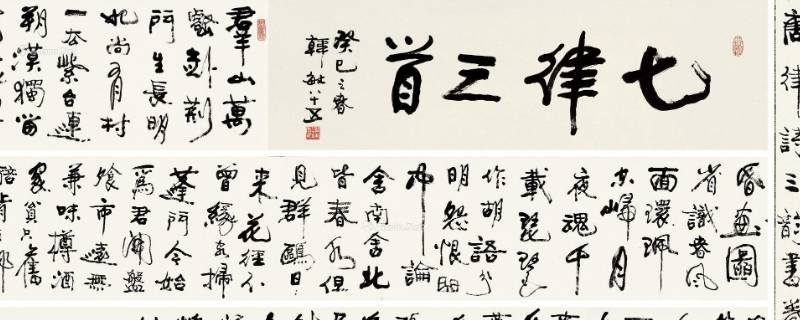 七律三首
癸巳之春
韓敏八十五
羣山萬
壑赴荆
门生長明
妃尚有村
一去紫台連
朔漠獨留
昏畫圖
省識春风
面環珮
空歸月
夜魂千
載琵琶
作胡語分
明怨恨曲
中論
舍南舍北
皆春水但
見群鷗日
來花徑不
曾緣客掃
蓬门今始
爲君開盤
飧市遠無
兼味樽酒
家貧只舊
醅肯
唐律詩三韵書卷